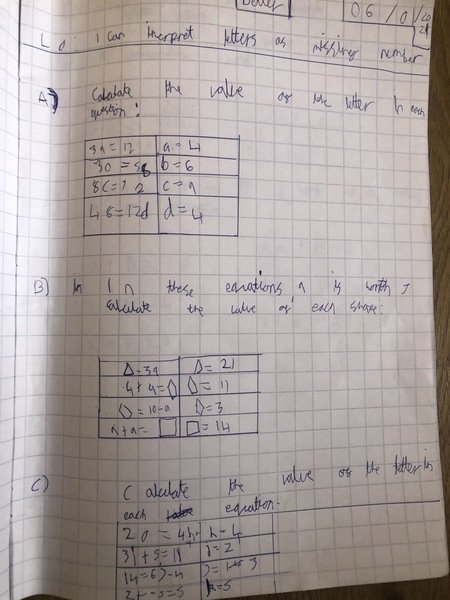 Date: 06/01/20
21
L o: I can interpret letters as missing number
A) Calculate the value of the letter in each
question:
3a = 12 a = 4
30 = 5b b = 6
8c = 72 c = 9
48 = 12d d = 4
B) In these equations a is worth 7
calculate the value of each shape.
△ = 3a △ = 21
4 + a = ⬠ ⬠ = 11
⬡ = 10 - a ⬡ = 3
a + a = □ □ = 14
C) Calculate the value of the letter in
each equation.
20 = 4h + h = 4
3i + 5 = 11 i = 2
14 = 6j - 4 j = 3
k = 5